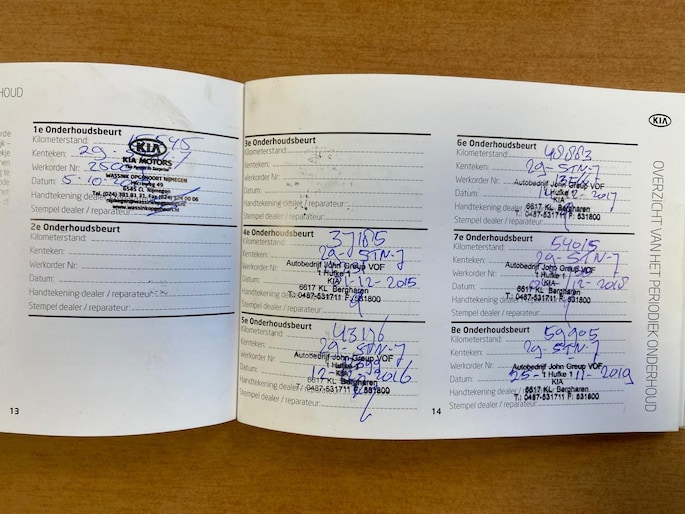 HOUD
1e Onderhoudsbeurt
Kilometerstand: 15545
Kenteken: 29
Werkorder Nr: 2500
Datum: 5-10-
Handtekening dealer / reparateur
Stempel dealer / reparateur
KIA
KIA MOTORS
The Power to Surprise
WASSINK OPGENOORT NIJMEGEN
2e Onderhoudsbeurt
Kilometerstand:
Kenteken:
Werkorder Nr:
Datum:
Handtekening dealer / reparateur:
Stempel dealer / reparateur:
13
3e Onderhoudsbeurt
Kilometerstand:
Kenteken:
Werkorder Nr:
Datum:
Handtekening dealer / reparateur:
Stempel dealer / reparateur:
4e Onderhoudsbeurt
Kilometerstand: 37185
Kenteken: 29-STN-7
Werkorder Nr:
Datum: 1-12-2015
Handtekening dealer / reparateur:
Stempel dealer / reparateur:
Autobedrijf John Greup VOF
't Hufke 1
KIA
6617 KL Bergharen
T.: 0487-531711 F: 531800
5e Onderhoudsbeurt
Kilometerstand: 43176
Kenteken: 29-STN-7
Werkorder Nr:
Datum: 12-12-2016
Handtekening dealer / reparateur:
Stempel dealer / reparateur:
Autobedrijf John Greup VOF
't Hufke 1
KIA
6617 KL Bergharen
T.: 0487-531711 F: 531800
14
6e Onderhoudsbeurt
Kilometerstand: 48883
Kenteken: 29-STN-7
Werkorder Nr:
Datum: 12-2017
Handtekening dealer / reparateur:
Stempel dealer / reparateur:
Autobedrijf John Greup VOF
't Hufke 1
KIA
6617 KL Bergharen
T.: 0487-531711 F: 531800
7e Onderhoudsbeurt
Kilometerstand: 54015
Kenteken: 29-STN-7
Werkorder Nr:
Datum: 12-2018
Handtekening dealer / reparateur:
Stempel dealer / reparateur:
Autobedrijf John Greup VOF
't Hufke 1
KIA
6617 KL Bergharen
T.: 0487-531711 F: 531800
8e Onderhoudsbeurt
Kilometerstand: 59905
Kenteken: 29-STN-7
Werkorder Nr:
Datum: 25-11-2019
Handtekening dealer / reparateur:
Stempel dealer / reparateur:
Autobedrijf John Greup VOF
't Hufke 1
KIA
6617 KL Bergharen
T.: 0487-531711 F: 531800
KIA
OVERZICHT VAN HET PERIODIEK ONDERHOUD